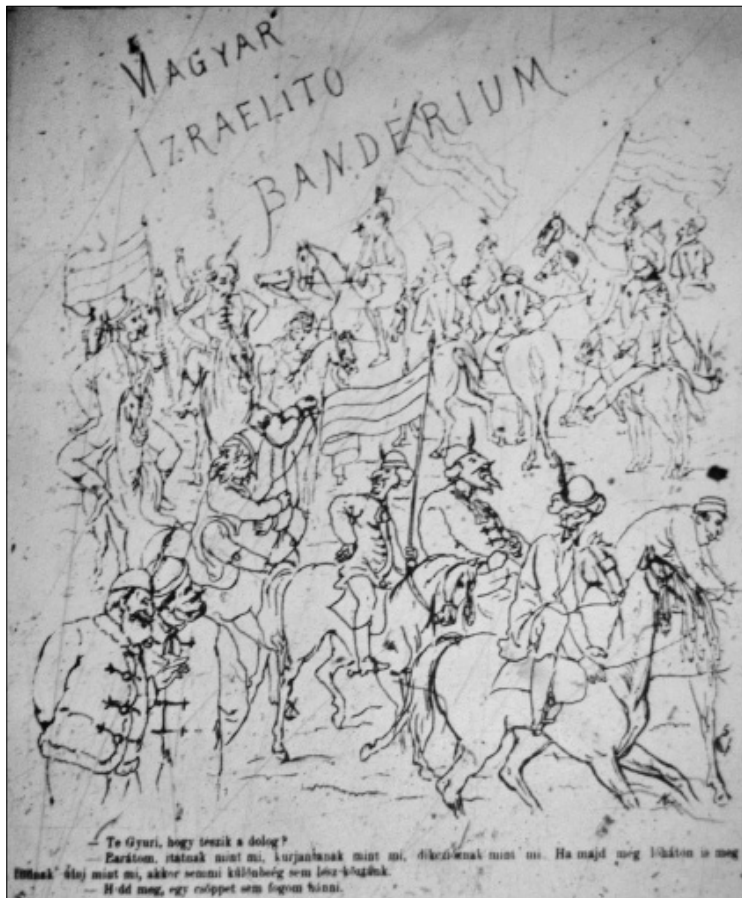 MAGYAR
IZRAELITO
BANDERIUM
— Te Gyuri, hogy teszik a dolog?
— Barátom, isznak mint mi, kurjantanak mint mi, mint mi. Ha majd még lóháton is meg
úgy mint mi, akkor semmi különbség sem lesz köztünk.
— H dd meg, egy csöppet sem fogom bánni.